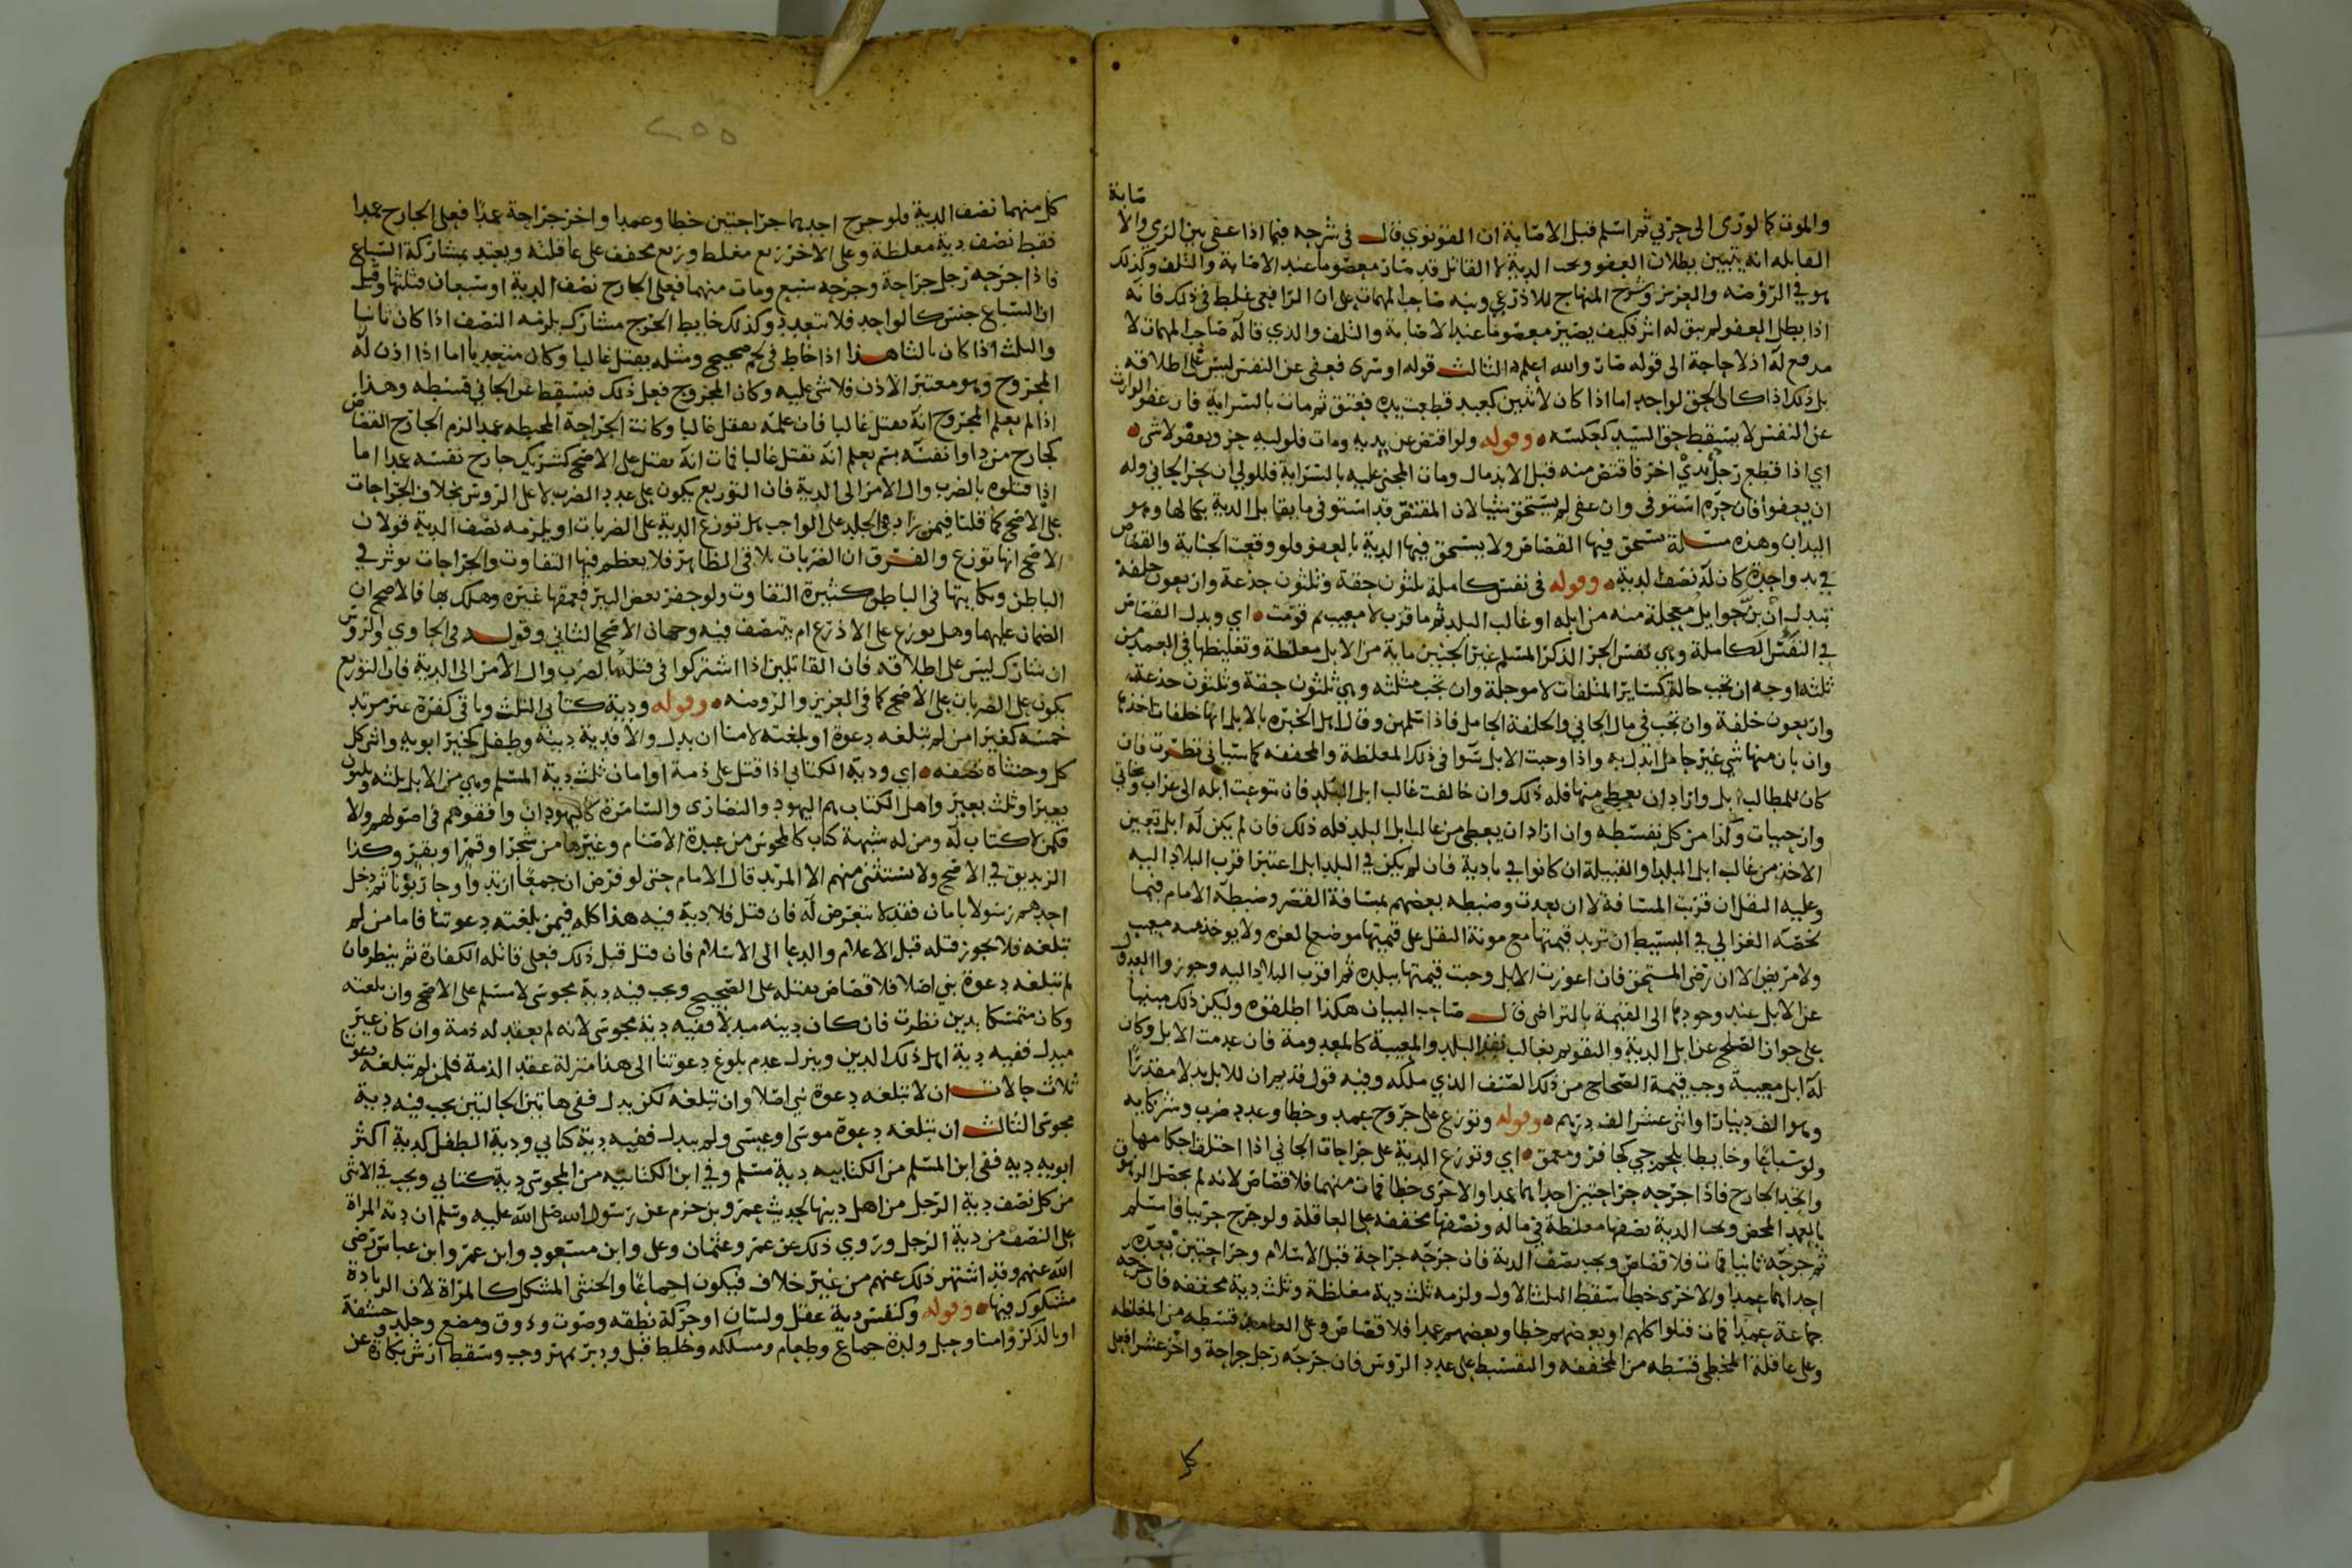 صابة
والموت كما لو رمى الى حربي ثم اسلم قبل الاصابة ان القونوي قال في شرحه فيما اذا عفى بين الرمي والا
القابله انه يتبين بطلان العفو وتجب الدية لا القاتل قد صار معصوما عند الاصابة والتلف وكذلك
هو في الروضه والعزيز وشرح المنهاج للاذرعي ونبه صاحب المهمات على ان الرافعي غلط في ذلك فانه
اذا بطل العفو لم يبق له اثر فكيف يصير معصوما عند الاصابة والتلف والذي قاله صاحب المهمات لا
مدفع له اذ لا حاجة الى قوله صار والله اعلم الثالث قوله او سرى فعفى عن النفس ليس على اطلاقه
بل ذلك اذا كان الحق لواحد اما اذا كان لاثنين كعبد قطعت يده فعتق ثم مات بالسراية فان عفو الوارث
عن النفس لا يسقط حق السيد كعكسه وقوله ولو اقتص عن يديه ومات فلوليه حز وبعفو لا شي
اي اذا قطع رجل يدي اخر فاقتص منه قبل الاندمال ومات المجني عليه بالسراية فللولي ان يحز الجاني وله
ان يعفوا فان حزه استوفى وان عفى لم يستحق شيا لان المقتص قد استوفى ما يقابل الدية بكمالها وهو
اليدان وهذه مسلة يستحق فيها القصاص ولا يستحق فيها الدية بالعفو فلو وقعت الجناية والقصاص
في يد واحدة كان له نصف الدية وقوله في نفس كاملة ثلثون حقة وثلثون جذعة واربعون خلفة
تبدل ان بن حوايل معجلة منه من ابله او غالب البلد ثم ما قرب لا معيب ثم قومت اي وبدل القصاص
في النفس الكاملة وهي نفس الحر الذكر المسلم غير الجنين ماية من الابل مغلظة وتغليظها في العمد من
ثلثه اوجه ان تجب حالة كساير المتلفات لا موجلة وان تجب مثلثه وهي ثلثون حقة وثلثون جذعة
واربعون خلفة وان تجب في مال الجاني والخلفة الحامل فاذا تسلمهن وقال اهل الخبره بالابل انها خلفات اخذها
وان بان منها شي غير حامل ابدل به واذا وجبت الابل سوا في ذلك المغلظة والمخففه كما سياتي نظرت فان
كان للمطالب ابل واراد ان يعطي منها فله ذلك وان خالفت غالب ابل البلد فان تنوعت ابله الى عراب وبخاتي
وارحبيات وكذا من كل بقسطه وان اراد ان يعطي من غالب ابل البلد فله ذلك فان لم يكن له ابل تعين
الاخذ من غالب ابل البلد او القبيلة ان كانوا في بادية فان لم يكن في البلد ابل اعتبر اقرب البلاد اليه
وعليه النقل ان قربت المسافة لا ان بعدت وضبطه بعضهم بمسافة القصر وضبطه الامام فيما
لخصه الغزالي في البسيط ان تزيد قيمتها مع مونة النقل على قيمتها موضع العزه ولا يوخذ معيب
ولا مريض الا ان رضي المستحق فان اعوزت الابل وجبت قيمتها ببلده ثم اقرب البلاد اليه وجوزوا العدول
عن الابل عند وجودها الى القيمة بالتراضي قال صاحب البيان هكذا اطلقوه وليكن ذلك مبنيا
على جواز الصلح عن ابل الدية والتقويم بغالب نقد البلد والمعيبة كالمعدومة فان عدمت الابل وكان
له ابل معيبة وجب قيمة الصحاح من ذلك الصنف الذي ملكه وفيه قول قديم ان للابل بدلا مقدرا
وهو الف دينار او اثنى عشر الف درهم وقوله وتوزع على جروح عمد وخطا وعدد ضرب وشركايه
ولو سباعا وخابطا بلحم حي كحافر ومعمق اي وتوزع الدية على جراحات الجاني اذا اختلف احكامها
واتحد الجارح فاذا جرحه جراحتين احداهما عمدا والاخرى خطا فمات منهما فلا قصاص لانه لم يحصل الزهوق
بالعمد المحض وتجب الدية نصفها مغلظة في ماله ونصفها مخففه على العاقلة ولو جرح حربيا فاسلم
ثم جرحه ثانيا فمات فلا قصاص ويجب نصف الدية فان جرحه جراحة قبل الاسلام وجراحتين بعده
احداهما عمدا والاخرى خطا سقط الثلث الاول ولزمه ثلث دية مغلظة وثلث دية مخففه فان جرحه
جماعة عمدا فمات قتلوا كلهم او بعضهم خطا وبعضهم عمدا فلا قصاص وعلى العامد قسطه من المغلظه
وعلى عاقلة المخطي قسطه من المخففه والتقسيط على عدد الروس فان جرحه رجل جراحة واخر عشرا فعلى
كل
٢٥٥
كل منهما نصف الدية فلو جرح احدهما جراحتين خطا وعمدا واخر جراحة عمدا فعلى الجارح عمدا
فقط نصف دية مغلظة وعلى الاخر ربع مغلظ وربع مخفف على عاقلته ويعتد بمشاركة السباع
فاذا جرحه رجل جراحة وجرحه سبع ومات منهما فعلى الجارح نصف الدية او سبعان فثلثها وقيل
ان السباع جنس كالواحد فلا تتعدد وكذلك خايط الجرح مشارك يلزمه النصف اذا كان ثانيا
والثلث اذا كان ثالثا هذا اذا خاط في لحم صحيح ومثله يقتل غالبا وكان متعديا اما اذا اذن له
المجروح وهو معتبر الاذن فلا شي عليه وكان المجروح فعل ذلك فيسقط عن الجاني قسطه وهذا
اذا لم يعلم المجروح انه يقتل غالبا فان علمه يقتل غالبا وكانت الجراحة المخيطه عمدا لزم الجارح القصاص
كجارح من داوا نفسه بسم يعلم انه يقتل غالبا فمات انه يقتل على الاصح كشريك جارح نفسه عمدا اما
اذا قتلوه بالضرب وال الامر الى الدية فان التوزيع يكون على عدد الضرب لا على الروس بخلاف الجراحات
على الاصح كما قلنا فيمن زاد في الجلد على الواجب هل توزع الدية على الضربات او يلزمه نصف الدية قولان
الاصح انها توزع والفرق ان الضربات تلاقي الظاهر فلا يعظم فيها التفاوت والجراحات توثر في
الباطن ونكاياتها في الباطن كثيرة التفاوت ولو حفر بعض البير فعمقها غيره وهلك بها فالاصح ان
الضمان عليهما وهل يوزع على الاذرع ام يتنصف فيه وجهان الاصح الثاني وقوله في الحاوي والروس
ان تشارك ليس على اطلاقه فان القاتلين اذا اشتركوا في قتله بالضرب وال الامر الى الدية فان التوزيع
يكون على الضربات على الاصح كما في العزيز والروضه وقوله ودية كتابي الثلث وباقي كفرة غير مرتد
خمسه كغير امن لم تبلغه دعوة او بلغته لامنا ان بدل والا فدية دينه وطفل كخير ابويه وانثى كل
كل وخنثاه نصفه اي ودية الكتابي اذا قتل على ذمة او امان ثلث دية المسلم وهي من الابل ثلثه وثلثون
بعيرا وثلث بعير واهل الكتاب هم اليهود والنصارى والسامرة كاليهود ان وافقوهم في اصولهم والا
فكمن لا كتاب له ومن له شبهة كتاب كالمجوس من عبدة الاصنام وغيرها من شجر او قمر او بقر وكذا
الزنديق في الاصح ولا يستثنى منهم الا المرتد قال الامام حتى لو فرض ان جمعا ارتدوا وحاربونا ثم دخل
احدهم رسولا بامان فقد لا نتعرض له فان قتل فلا دية فيه هذا كله فيمن بلغته دعوتنا فاما من لم
تبلغه فلا يجوز قتله قبل الاعلام والدعا الى الاسلام فان قتل قبل ذلك فعلى قاتله الكفارة ثم ينظر فان
لم تبلغه دعوة نبي اصلا فلا قصاص بقتله على الصحيح ويجب فيه دية مجوسي لا مسلم على الاصح وان بلغته
وكان متمسكا بدين نظرت فان كان دينه مبدلا ففيه دية مجوسي لانه لم يعقد له ذمة وان كان غير
مبدل ففيه دية اهل ذلك الدين وينزل عدم بلوغ دعوتنا الى هذا منزلة عقد الذمة فلمن لم تبلغه دعوتنا
ثلاث حالات ان لا تبلغه دعوة نبي اصلا وان تبلغه لكن بدل ففي هاتين الحالتين يجب فيه دية
مجوسي الثالث ان تبلغه دعوة موسى او عيسى ولم يبدل ففيه دية كتابي ودية الطفل كدية اكثر
ابويه ديه ففي ابن المسلم من الكتابيه دية مسلم وفي ابن الكتابيه من المجوسي دية كتابي ويجب في الانثى
من كل نصف دية الرجل من اهل دينها لحديث عمرو بن حزم عن رسول الله صلى الله عليه وسلم ان دية المراة
على النصف من دية الرجل وروي ذلك عن عمر وعثمان وعلي وابن مسعود وابن عمر وابن عباس رضي
الله عنهم وقد اشتهر ذلك عنهم من غير خلاف فيكون اجماعا والخنثى المشكل كالمراة لان الزيادة
مشكوك فيها وقوله وكنفس دية عقل ولسان او حركة نطقه وصوت وذوق ومضغ وجلد وحشفة
او بالذكر وامنا وحبل ولذة جماع وطعام ومسلكه وخليط قبل ودبر بمهر وجب وسقط ارش بكارة عن